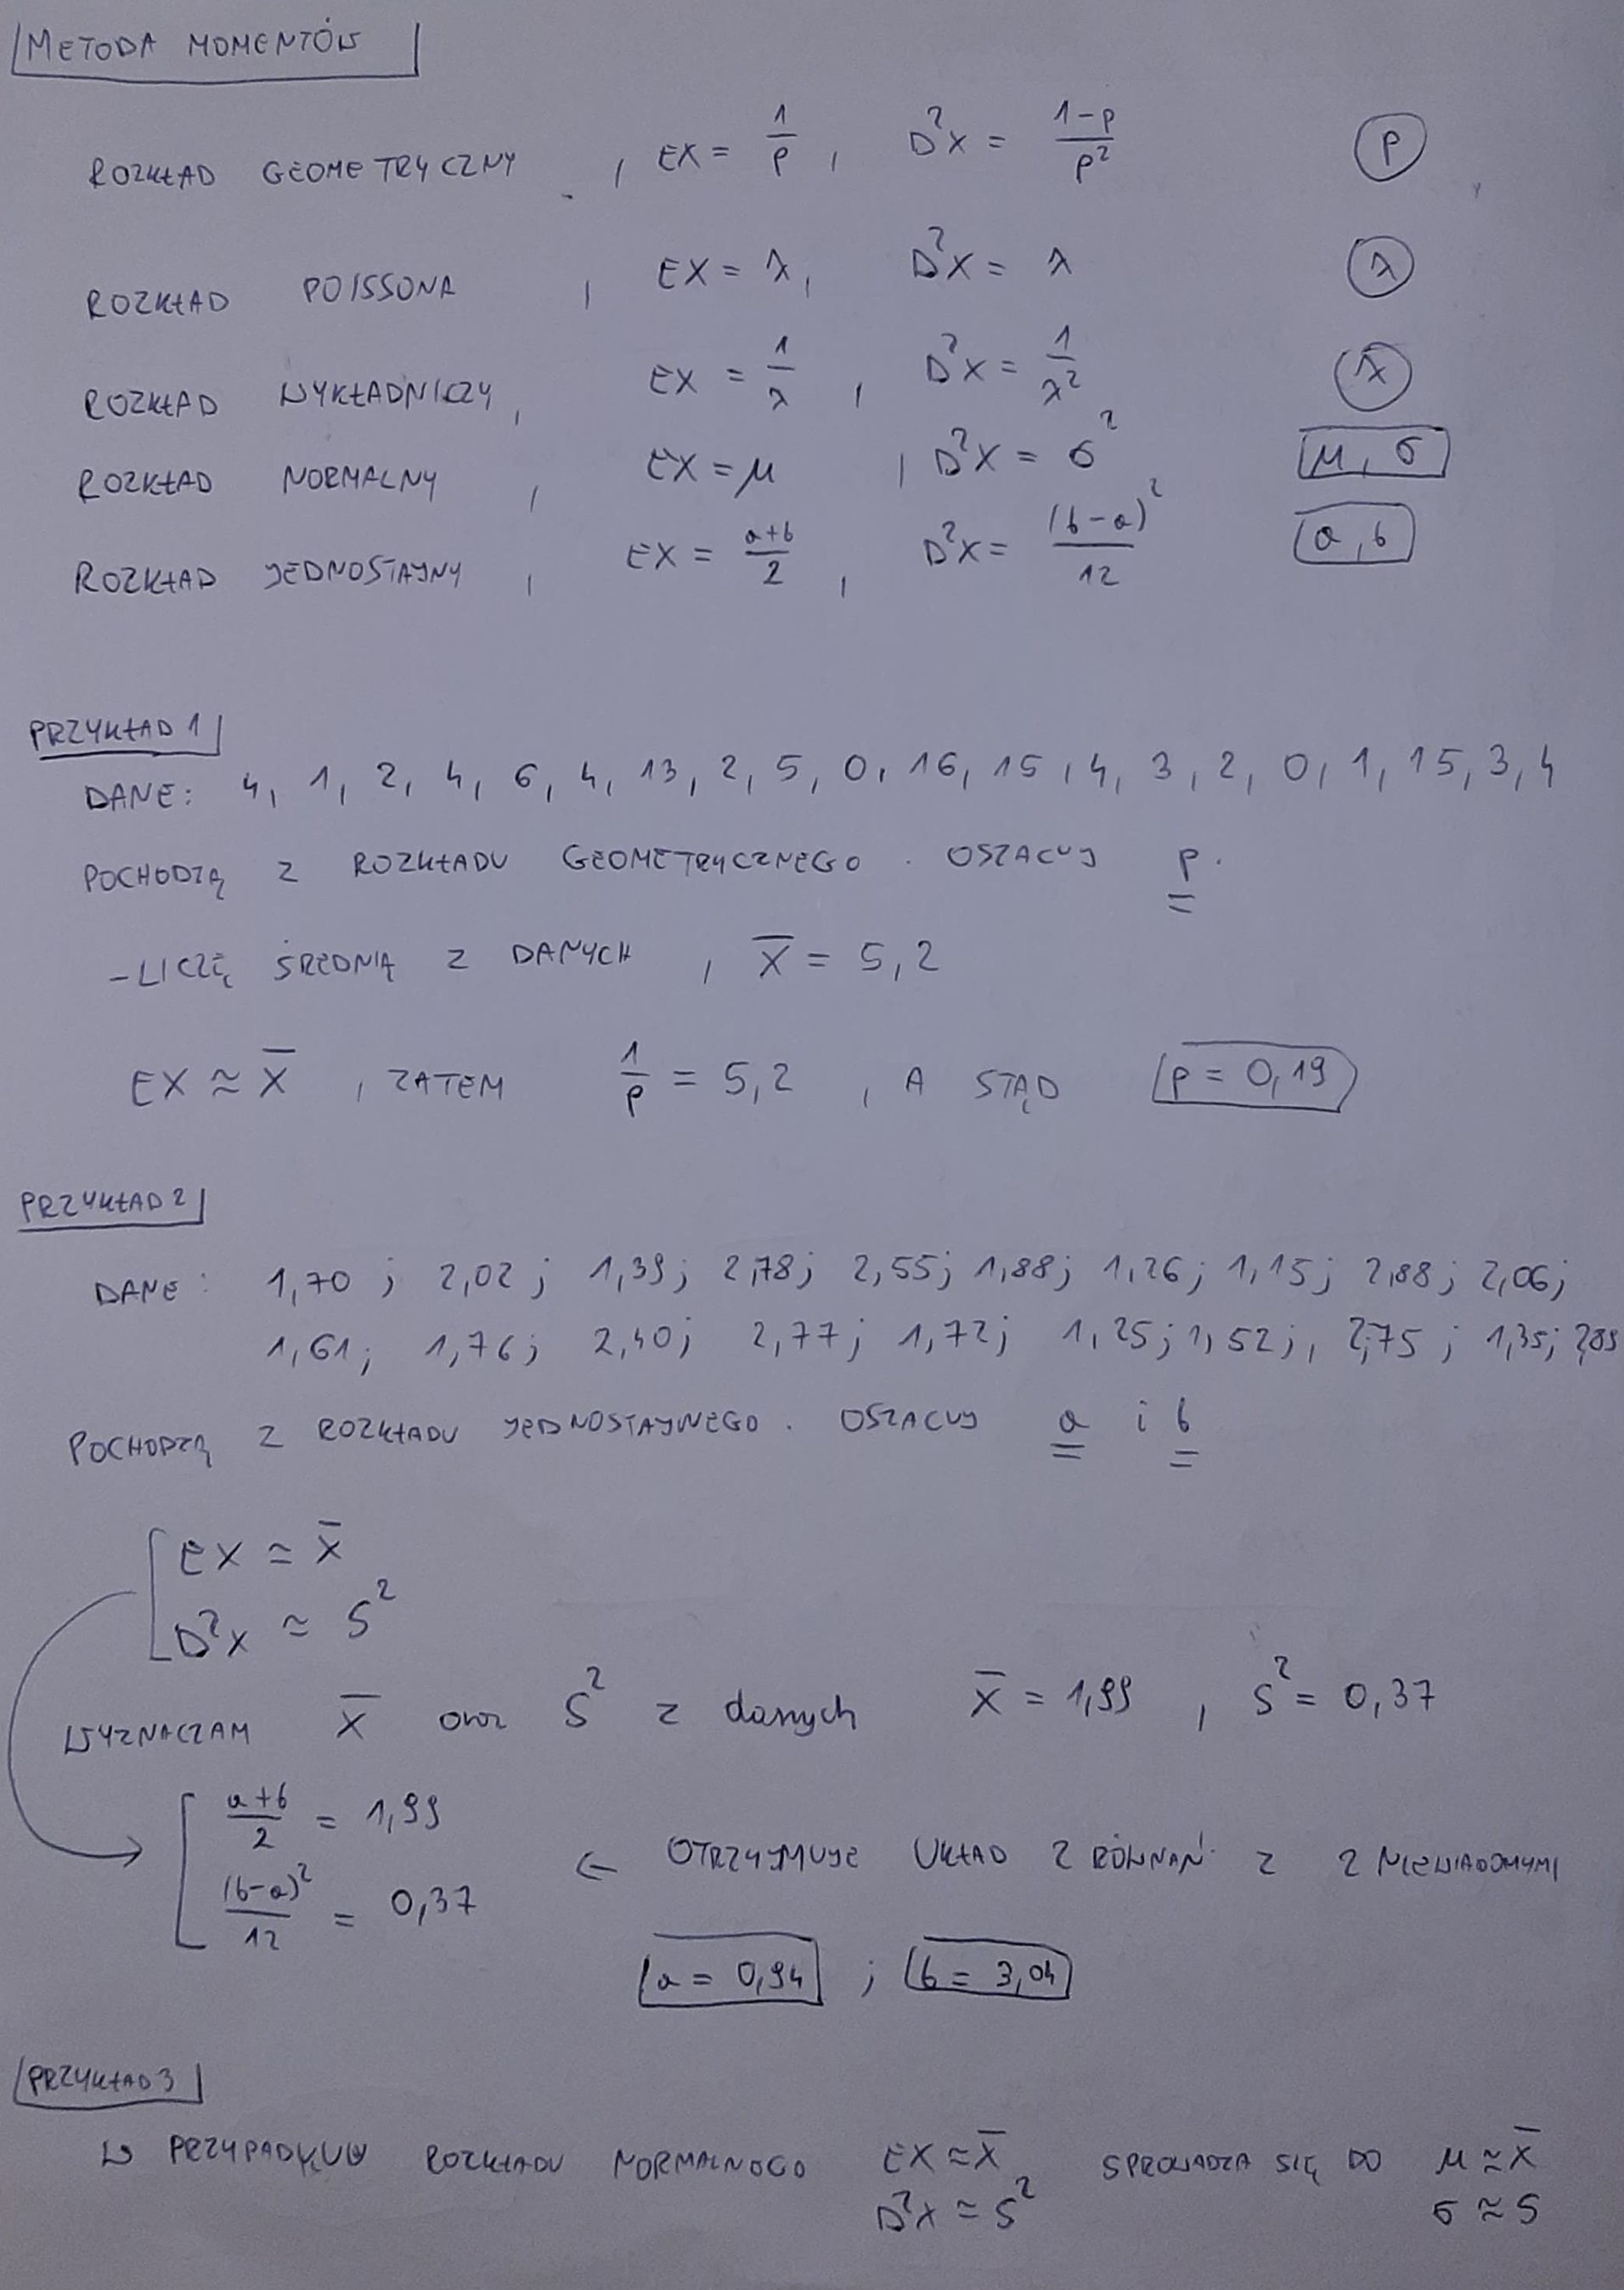 METODA MOMENTÓW
ROZKŁAD GEOMETRYCZNY , EX = 1/p , D²X = (1-p)/p² p
ROZKŁAD POISSONA , EX = λ, D²X = λ λ
ROZKŁAD WYKŁADNICZY, EX = 1/λ , D²X = 1/λ² λ
ROZKŁAD NORMALNY , EX = μ , D²X = σ² μ, σ
ROZKŁAD JEDNOSTAJNY , EX = (a+b)/2 , D²X = (b-a)²/12 a, b
PRZYKŁAD 1
DANE: 4, 1, 2, 4, 6, 4, 13, 2, 5, 0, 16, 15, 4, 3, 2, 0, 1, 15, 3, 4
POCHODZĄ Z ROZKŁADU GEOMETRYCZNEGO. OSZACUJ p.
-LICZĘ ŚREDNIĄ Z DANYCH , X̄ = 5,2
EX ≈ X̄ , ZATEM 1/p = 5,2 , A STĄD p = 0,19
PRZYKŁAD 2
DANE: 1,70 ; 2,02 ; 1,39; 2,78; 2,55; 1,88; 1,26; 1,15; 2,88; 2,06;
1,61; 1,76; 2,40; 2,77; 1,72; 1,25; 1,52;, 2,75 ; 1,35;
POCHODZĄ Z ROZKŁADU JEDNOSTAJNEGO. OSZACUJ a i b
EX ≈ X̄
D²X ≈ S²
WYZNACZAM X̄ oraz S² z danych X̄ = 1,99 , S² = 0,37
(a+b)/2 = 1,99
← OTRZYMUJE UKŁAD 2 RÓWNAŃ Z 2 NIEWIADOMYMI
(b-a)²/12 = 0,37
a = 0,94 ; b = 3,04
PRZYKŁAD 3
W PRZYPADKU ROZKŁADU NORMALNOGO EX ≈ X̄ SPROWADZA SIĘ DO μ ≈ X̄
D²X ≈ S² σ ≈ S